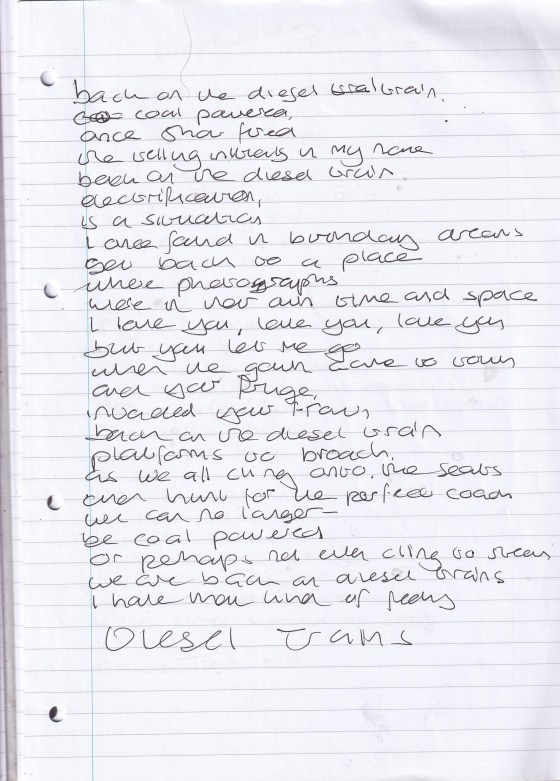 back on the diesel train.
coal powered,
once
the rolling in my name
back on the diesel train
electrification,
is a situation
I once found in birthday dreams
get back to a place
where photographs
were in their own time and space
I love you, love you, love you
but you let me go
when the came to town
and your fringe,
invaded your frown
back on the diesel train
platforms to broach.
as we all cling onto, the seats
and hunt for the perfect coach
we can no longer—
be coal powered
or perhaps not even cling to steam
we are back on diesel trains
I have kind of
Diesel Trains